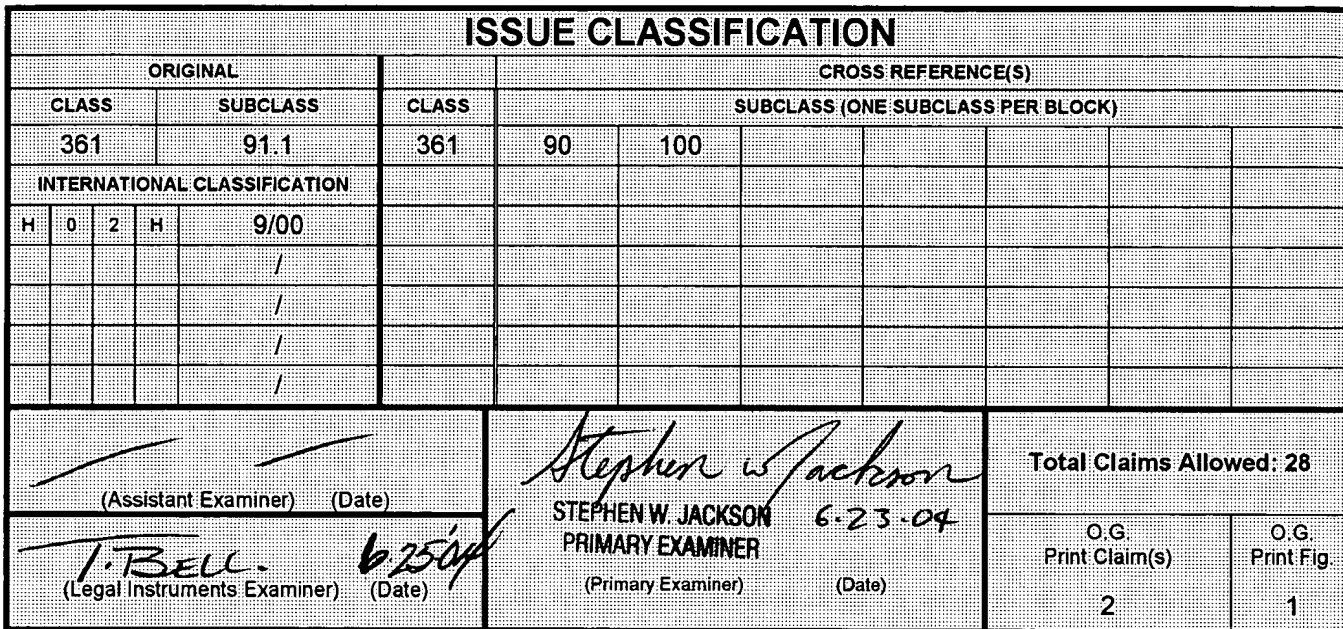 ISSUE CLASSIFICATION
ORIGINAL CROSS REFERENCE(S)
CLASS SUBCLASS CLASS SUBCLASS (ONE SUBCLASS PER BLOCK)
361 91.1 361 90 100
INTERNATIONAL CLASSIFICATION
H 0 2 H 9/00
/
/
/
/
(Assistant Examiner) (Date)
T. BELL. 6.25.04
(Legal Instruments Examiner) (Date)
Stephen W Jackson
STEPHEN W. JACKSON 6.23.04
PRIMARY EXAMINER
(Primary Examiner) (Date)
Total Claims Allowed: 28
O.G. Print Claim(s)
2
O.G. Print Fig.
1